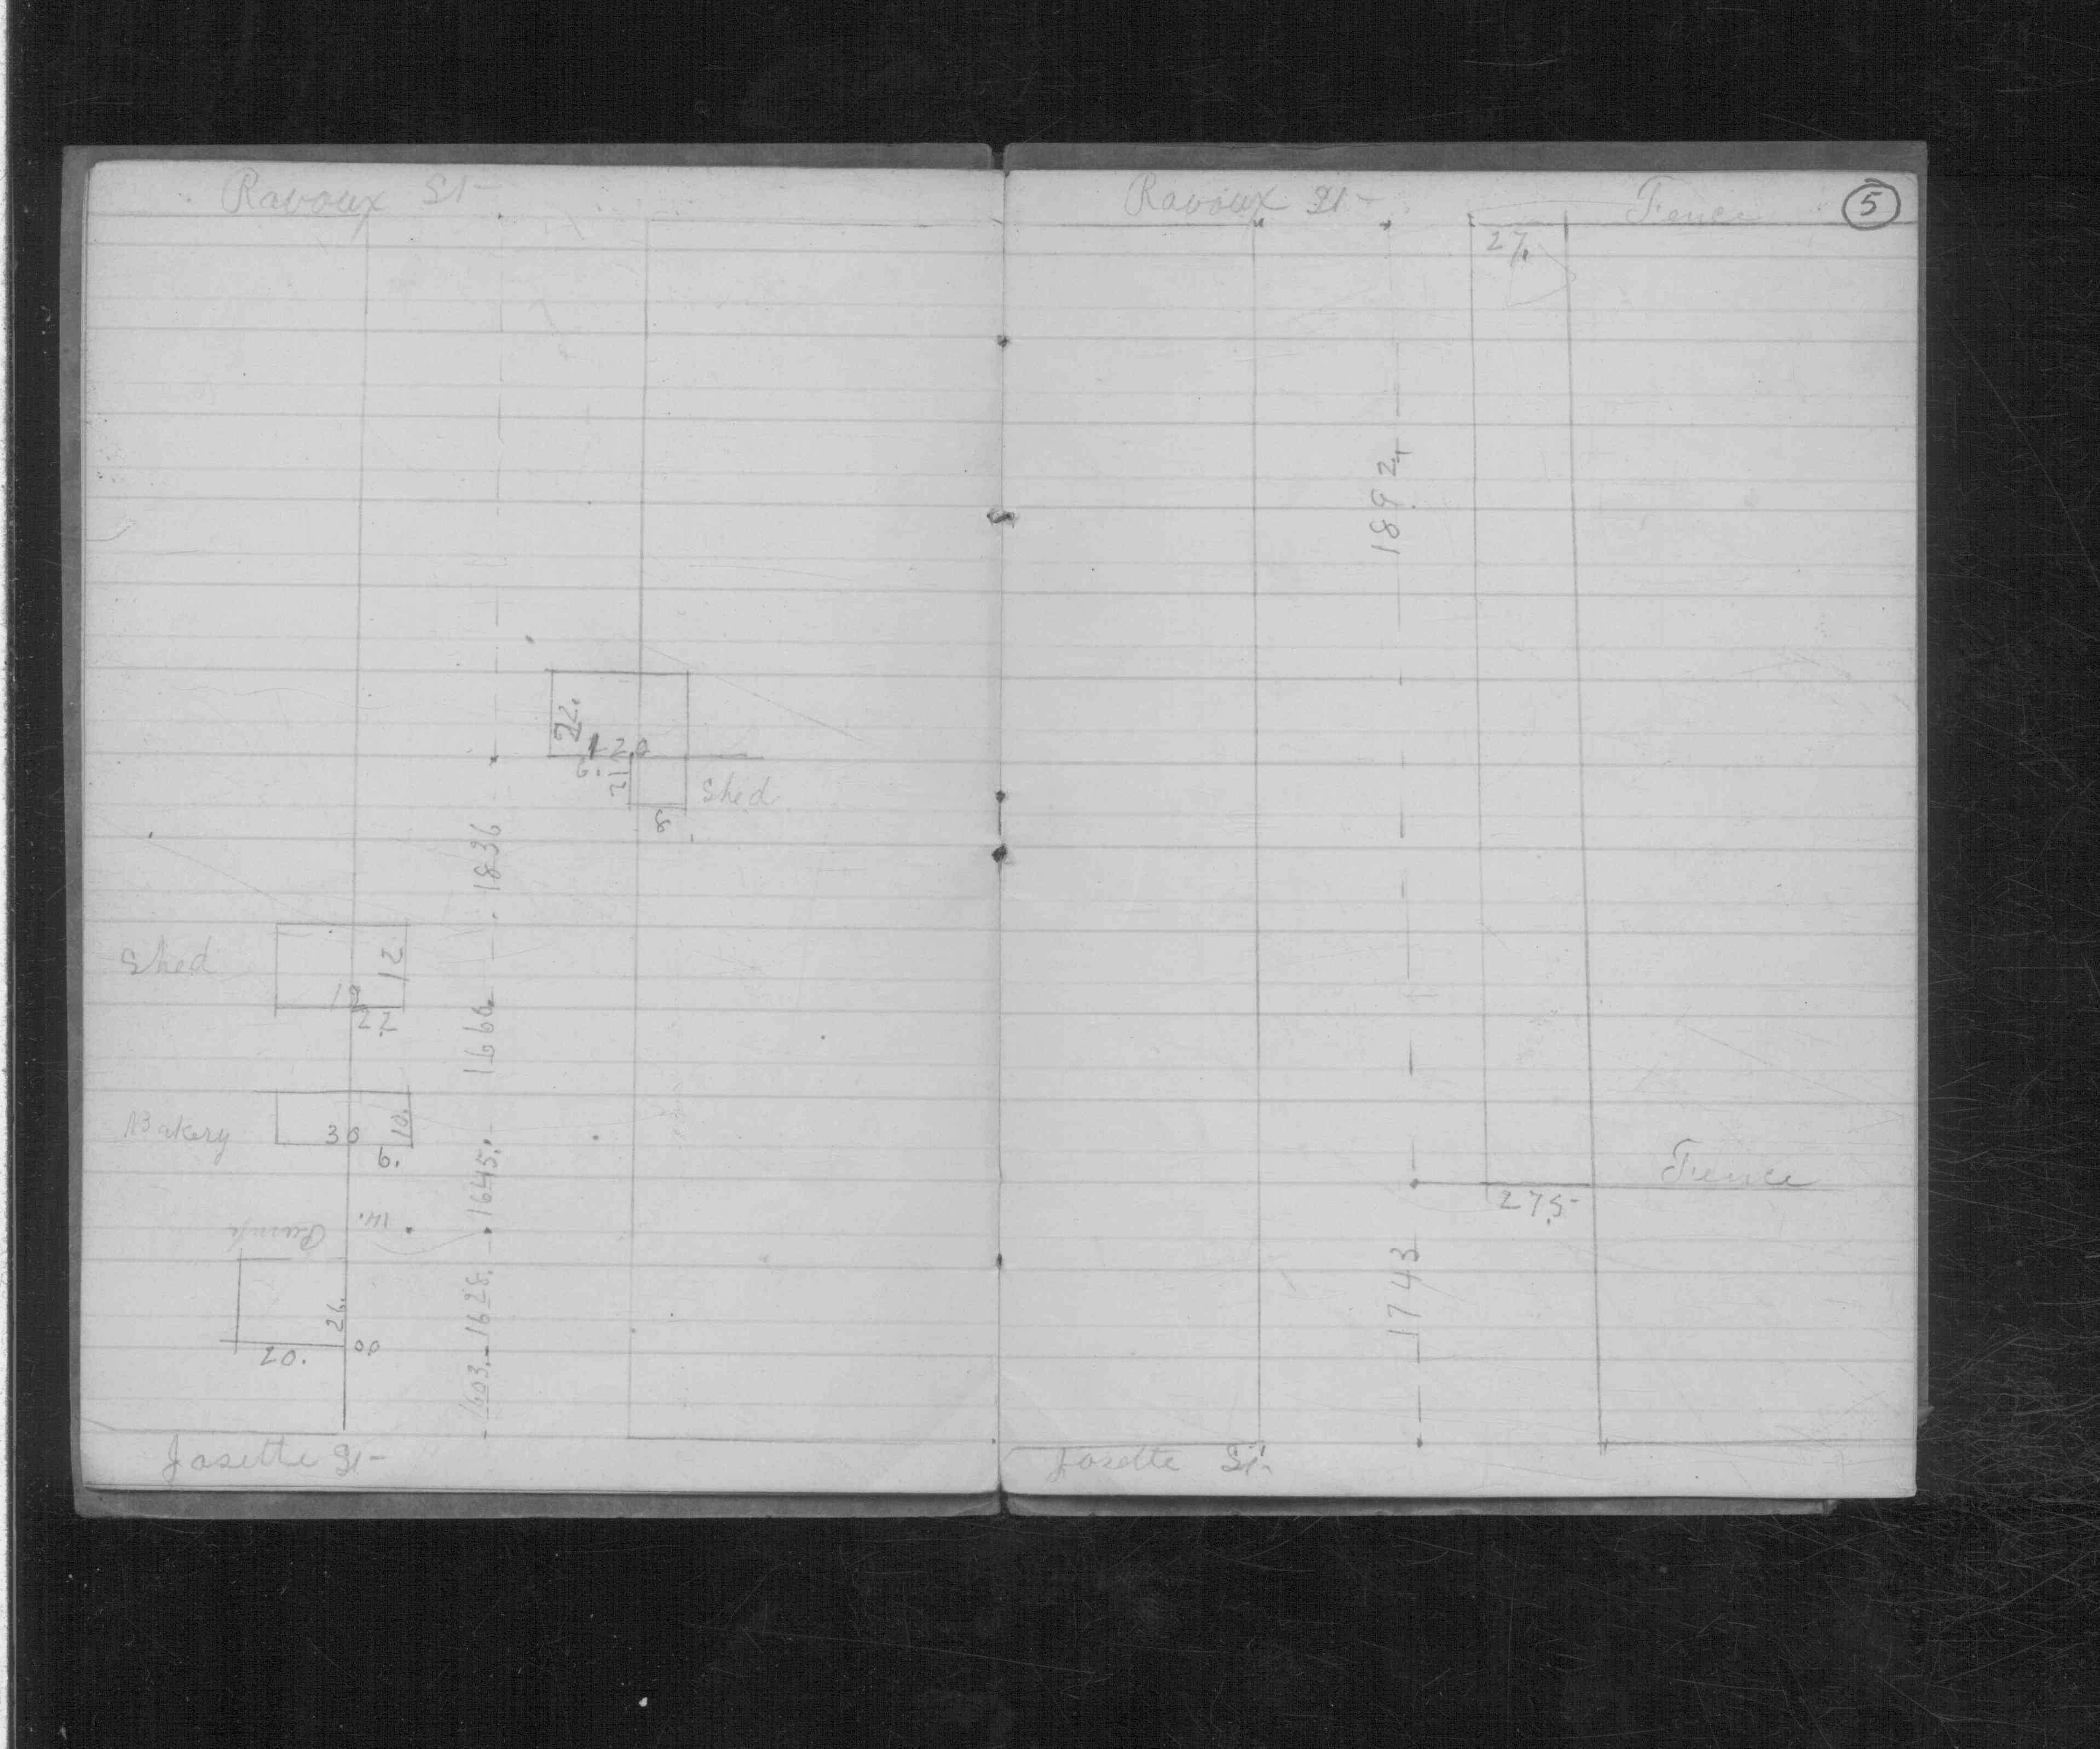 Ravoux St-
22.
120
6.
12
Shed
8
1836
Shed
12
18
22
1666.
Bakery
30
10.
6.
1645.
Pump
14.
1628.
26.
20.
00
1603.
Josette St-
Ravoux St-
Fence
5
27.
1892
Fence
27.5-
1743
Josette St.